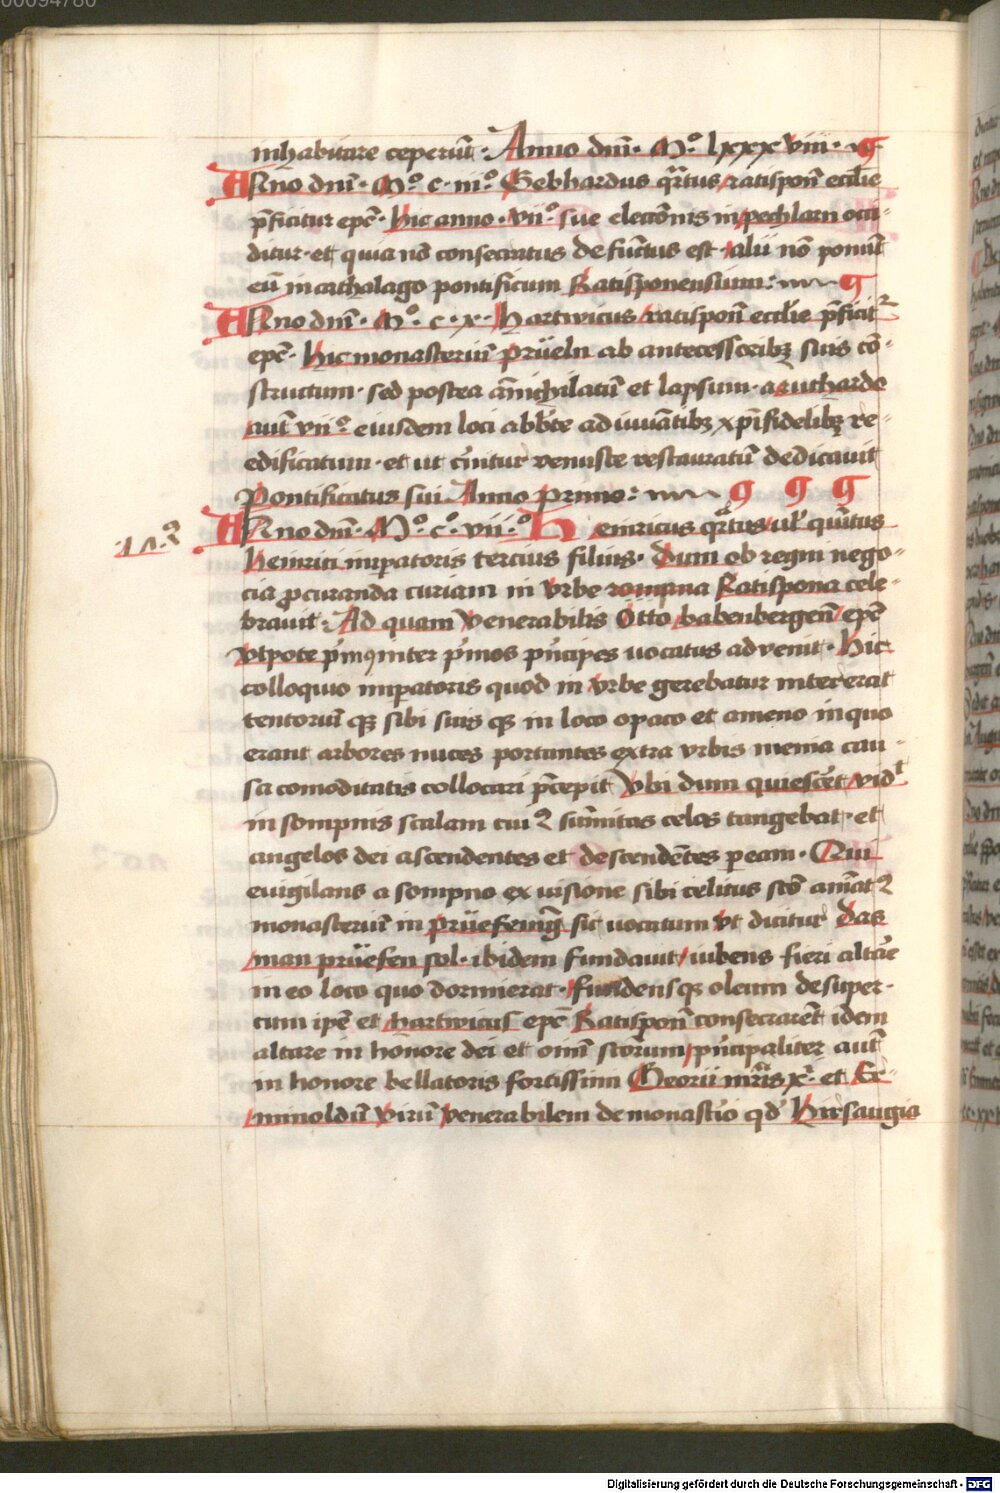 00094780
inhabitare ceperūt · Anno dnī · Mº · lxxxviii ·
ANno dnī · Mº · c · iiiº Gebhardus qrtus ratisponn̄ ecclīe
p̄ficitur epē · hic anno · viiº · sue electōnis in pechlarn occi-
ditur · et quia nō consecratus defūctus est · alii nō ponūt
eū in cathalago pontificum Ratisponensium :
ANno dnī · Mº · c · x · hartwicus ratisponn̄ ecclīe p̄ficit2
epē · hic monasteriū prüeln ab antecessoribꝫ suis cō-
structum · sed postea ānichilatū et lapsum · a ruthardo
aut̄ viiº eiusdem loci abbte adiuuātibꝫ xp̄ifidelibꝫ re-
edificatum · et ut c̄nitur venuste restauratū dedicauit
Pontificatus sui Anno primo :
ANno dnī · Mº · cº · vii · º Heinricus qrtus ul' qūtus
heinrici imp̄atoris tercius filius · dum ob regni nego-
cia ꝓcuranda curiam in vrbe romana Ratispona cele-
brauit · Ad quam venerabilis Otto babenbergen̄ epē
vtpote p̄mꝰ inter p̄mos p̄ncipes uocatus aduenit · hic
colloquio imp̄atoris quod in vrbe gerebatur intererat
tentoriū qꝫ sibi suis qꝫ in loco opaco et ameno in quo
erant arbores nuces portantes extra vrbis menia cau-
sa comoditatis collocari p̄cepit Vbi dum quiescēt vidt
in sompnis scalam cui2 sūmitas celos tangebat · et
angelos dei ascendentes et descendētes p eam · Qui
euigilans a sompno ex uisione sibi celitus stō amāt2
monasteriū in prüefening sic uocatum vt dicitur das
man prüefen sol · ibidem fundauit iubens fieri altāe
in eo loco quo dormierat · fundensqꝫ oleum desuper ·
cum ipē et hartwicus epē Ratisponn̄ consecrarēt idem
altare in honore dei et oim̄ stōrum p̄ncipaliter aut̄
in honore bellatoris fortissimi Georii mr̄is xī · et Er-
minoldū virū venerabilem de monastīo qd' hirsaugia